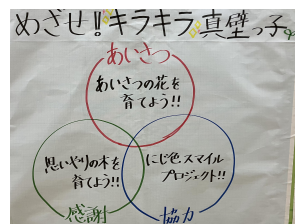 めざせ!!キラキラ真壁っ子
あいさつ
あいさつの花を
育てよう!!
思いやりの木を
育てよう!!
にじ色スマイル
プロジェクト!!
感謝
協力